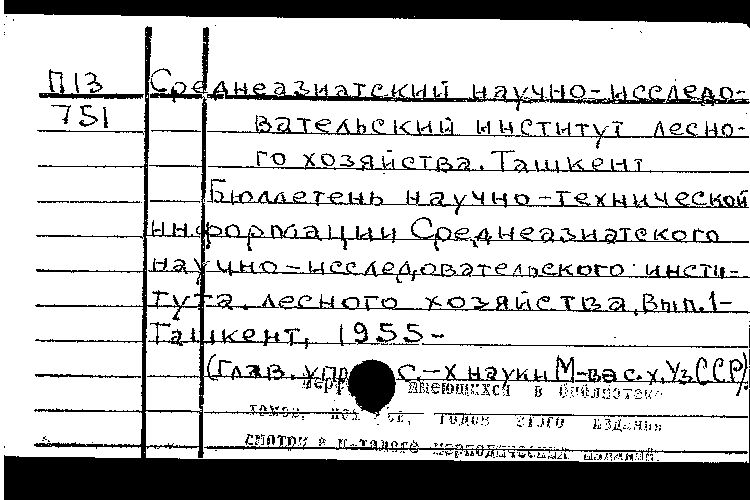 П13 Среднеазиатский научно-исследо-
751 вательский институт лесно-
го хозяйства. Ташкент
Бюллетень научно-технической
информации Среднеазиатского
научно-исследовательского инсти-
тута лесного хозяйства. Вып. 1-
Ташкент, 1955-
(Глав. упр. с.-х науки М-ва с.х. УзССР).
имеющихся в библиотеке
томов, годов этого издания
смотри в каталоге периодических изданий.